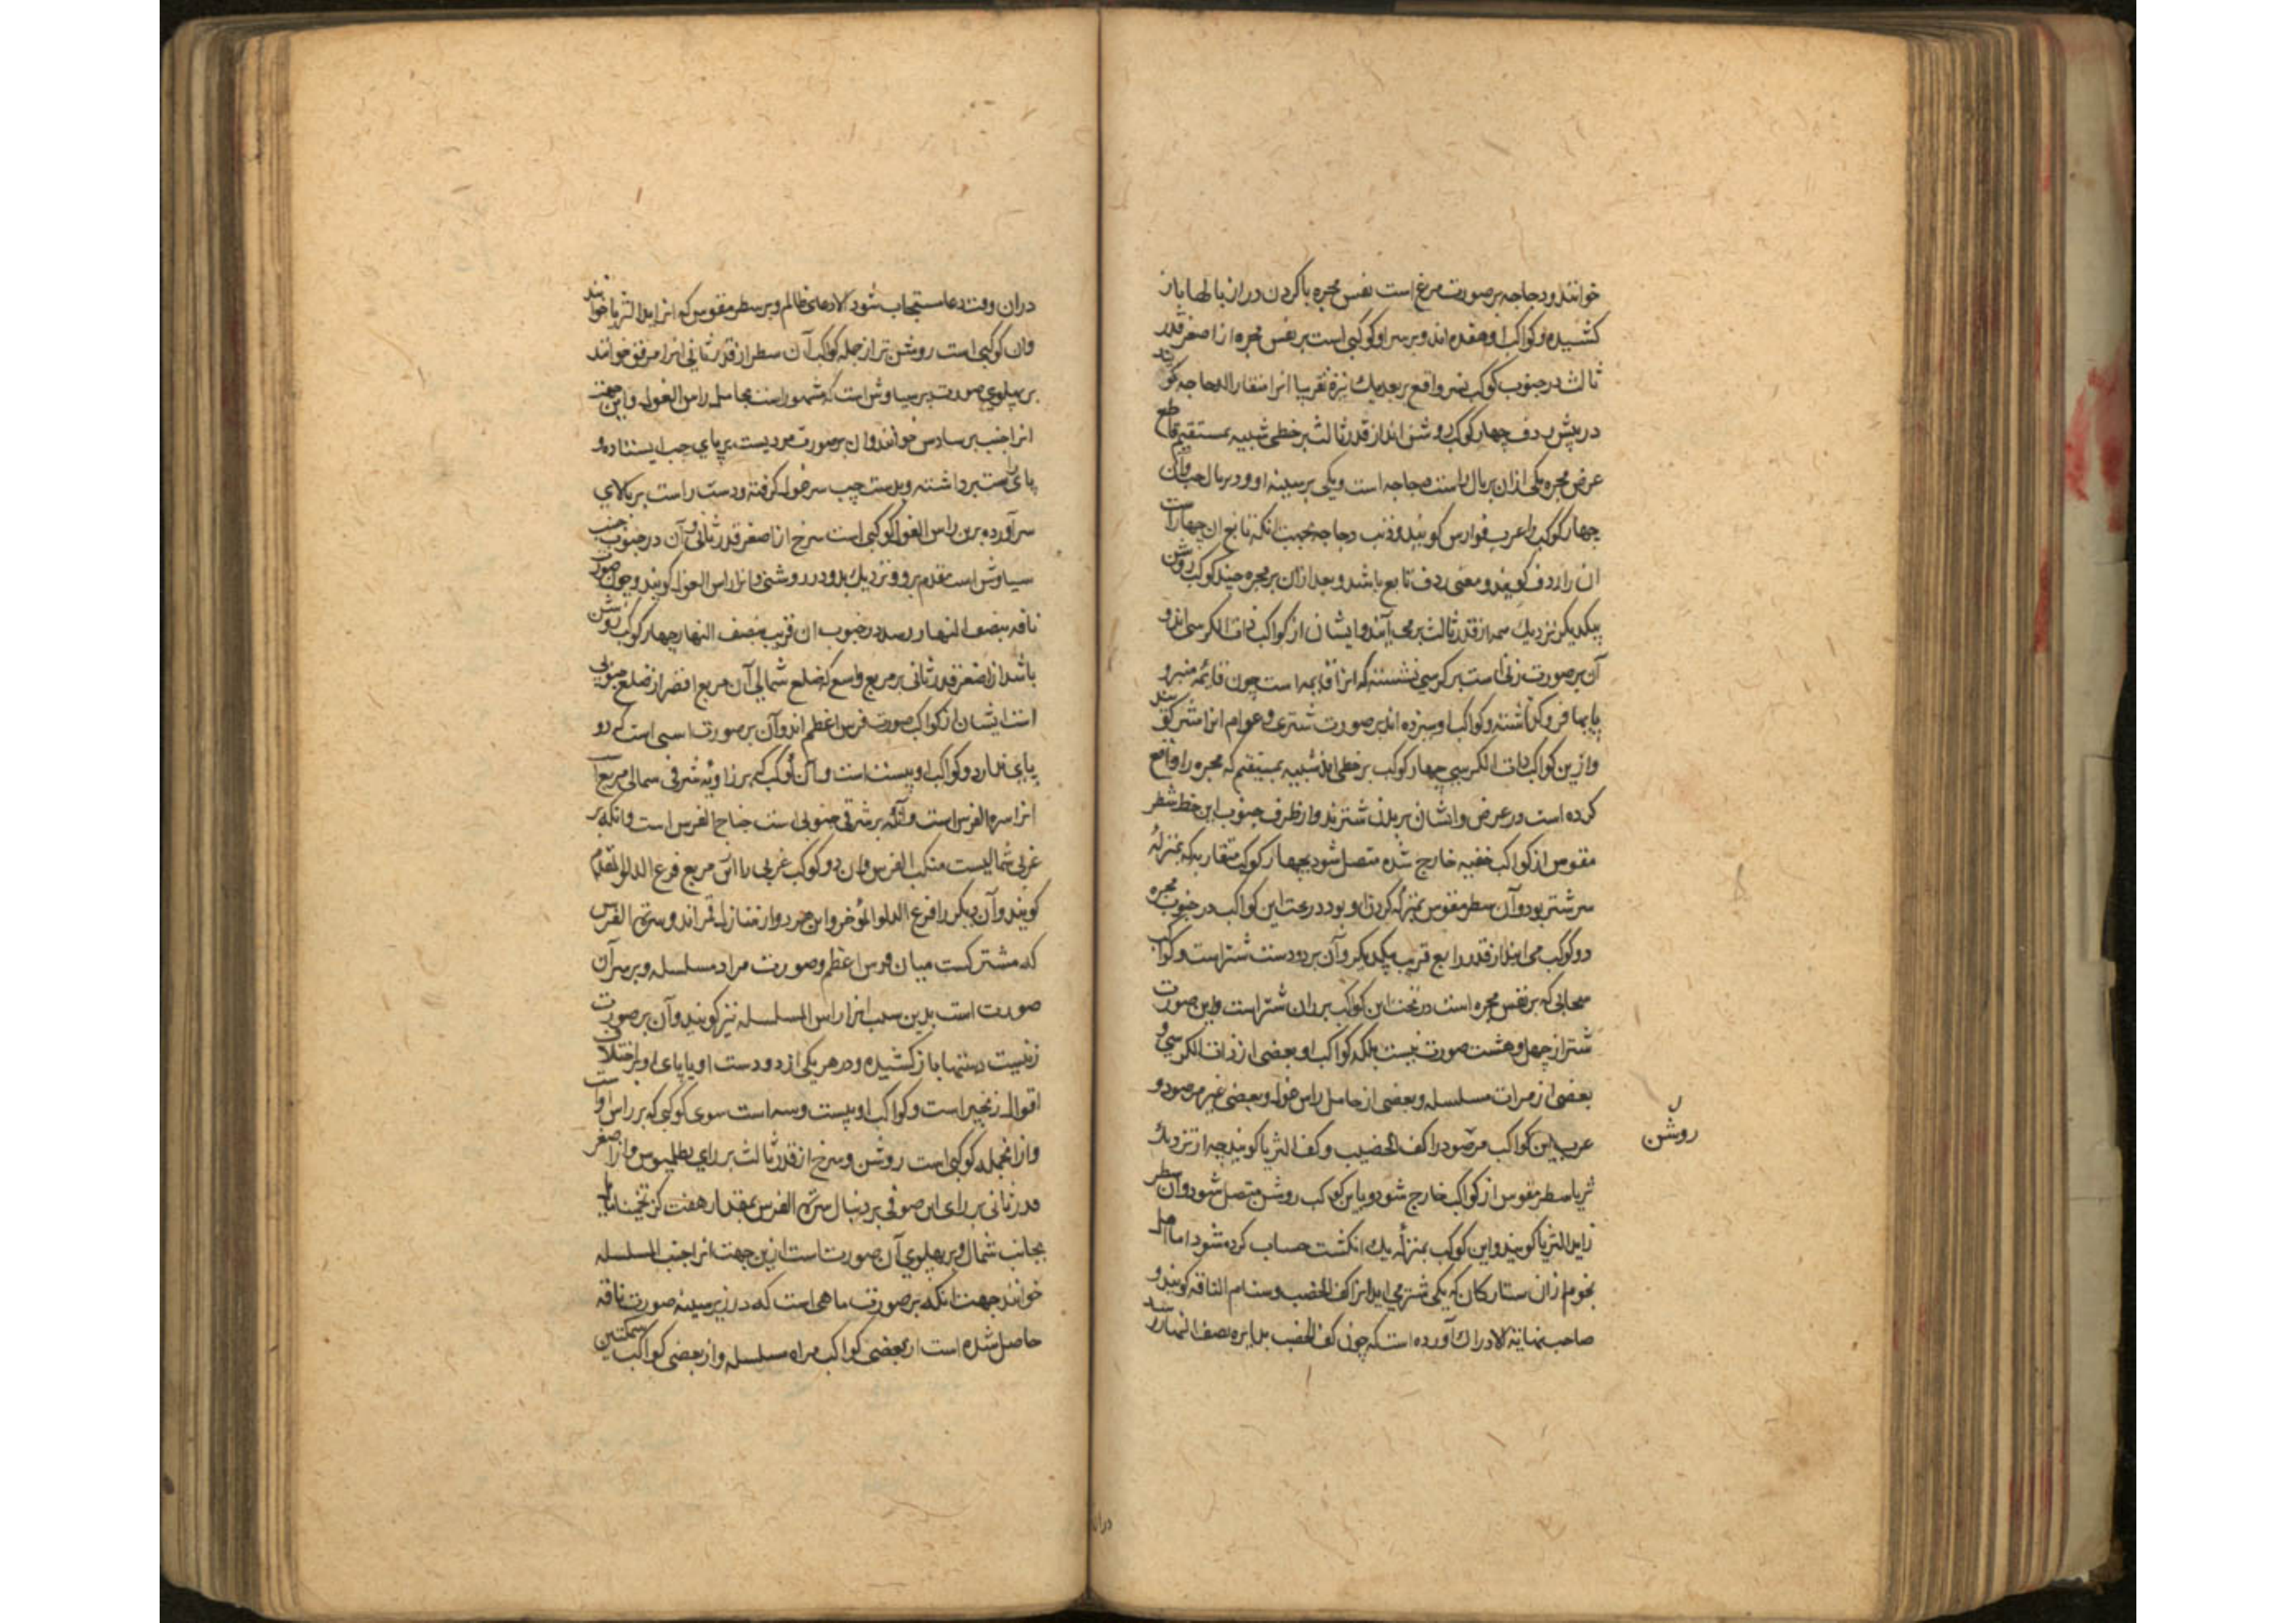 خوانند و دجاجه بر صورت مرغ است بر نفس مجره با کردن دراز بالها باز
کشیده و کواکب او هفده اند و بر سر او کوکبی است بر نفس مجره از اصغر قدر
ثالث در جنوب کوکب نسر واقع بر بعد یک نیزه تقریبا انرا منقار الدجاجه کویند
در پیش ردف چهار کوکب روشن اند از قدر ثالث بر خطی شبیه بمستقیم قاطع
عرض مجره یکی ازان بر بال راست دجاجه است و یکی بر سینه او و دو بر بال چپ و آن
چهار کوکب را عرب فوارس کویند و ذنب دجاجه بجهت انکه تابع ان چهار است
ان را ردف کویند و معنی ردف تابع باشد و بعد ازان بر مجره چند کوکب روشن
بیکدیکر نزدیک سه از قدر ثالث برمی آیند و ایشان از کواکب ذات الکرسی اند و
آن بر صورت زنی است بر کرسی نشسته که انرا قایمه است چون قائمه منبر و
پایها فروکذاشته و کواکب او سیزده اند بر صورت شتری و عوام انرا شتر کویند
و ازین کواکب ذات الکرسی چهار کوکب بر خطی اند شبیه بمستقیم که مجره را قطع
کرده است در عرض و ایشان بر بدن شترند و از طرف جنوب این خط سطر
مقوس از کواکب خفیه خارج شده متصل شود بچهار کوکب متقارب که بمنزلهٔ
سر شتر بود و آن سطر مقوس بمنزلهٔ کردن او بود و در تحت این کواکب در جنوب مجره
دو کوکب می ایند از قدر رابع قریب بیکدیکر و آن بر دو دست شتر است و کوکب
سحابی که بر نفس مجره است در تحت این کواکب بر ران شتر است و این صورت
شتر از چهل و هشت صورت نیست بلکه کواکب او بعضی از ذات الکرسی و
بعضی از مرات مسلسله و بعضی از حامل راس غول و بعضی غیر مرصود و
عرب این کواکب مرصود را کف الخضیب و کف الثریا کویند چه از نزدیک
ثریا سطر مقوس از کواکب خارج شود و باین کواکب روشن متصل شود و ان سطر
را ید الثریا کویند و این کوکب بمنزلهٔ یک انکشت حساب کرده شود اما اهل
نجوم ازان ستارکان که یکی شتر می اید انرا کف الخضیب و سنام الناقه کویند و
صاحب نهایة الادراک آورده است که چون کف الخضیب بدایره نصف النهار رسد
روشن
دران وقت دعا مستجاب شود الا دعای ظالم و بر سطر مقوس که انرا ید الثریا خوانند
وان کوکبی است روشن تر از جمله کواکب آن سطر از قدر ثانی انرا مرفق خوانند
بر پهلوی صورت برسیاوش است که مشهور است بحامل راس الغول و این جهت
انرا جنب برساوس خوانند و ان بر صورت مردیست بر پای چپ ایستاده و
پای راست برداشته و بدست چپ سر غول کرفته و دست راست بر بالای
سر آورده برین راس الغول کوکبی است سرخ از اصغر قدر ثانی و آن در جنوب جنب
سیاوش است مقدم برو و نزدیک بدو در روشنی و انرا راس الغول کویند و چون صورت
ناقه بنصف النهار رسد در جنوب ان قریب بنصف النهار چهار کوکب روشن
باشد از اصغر قدر ثانی بر مربع واسع که ضلع شمالی آن مربع اقصر از ضلع جنوبی
است ایشان از کواکب صورت فرس اعظم اند و آن بر صورت اسبی است که دو
پای ندارد و کواکب او بیست است و آن کوکب که بر زاویهٔ شرقی شمالی مربع است
انرا سرة الفرس است و آنکه بر شرقی جنوبی است جناح الفرس است و انکه بر
غربی شمالیست منکب الفرس و ان دو کوکب غربی را ازین مربع فرغ الدلو المقدم
کویند و آن دیکر را فرغ الدلو المؤخر و این هر دو از منازل قمر اند و سرة الفرس
که مشترکست میان فرس اعظم و صورت مراه مسلسله و بر سر آن
صورت است بدین سبب انرا راس المسلسله نیز کویند و آن بر صورت
زنیست دستها باز کشیده و در هر یکی از دو دست او یا پای او بر اختلاف
اقوال زنجیر است و کواکب او بیست و سه است سوی کوکبی که بر راس او است
و ازانجمله کوکبی است روشن و سرخ از قدر ثالث بر رای بطلمیوس و از اصغر
قدر ثانی بر رای ابن صوفی بر دنبال سرة الفرس بمقدار هفت کز تخمینا مایل
بجانب شمال و بر پهلوی آن صورت است ازین جهت انرا جنب المسلسله
خوانند جهت انکه بر صورت ماهی است که در زیر سینه صورت ناقه
حاصل شده است از بعضی کواکب مراه مسلسله و از بعضی کواکب سمکتین